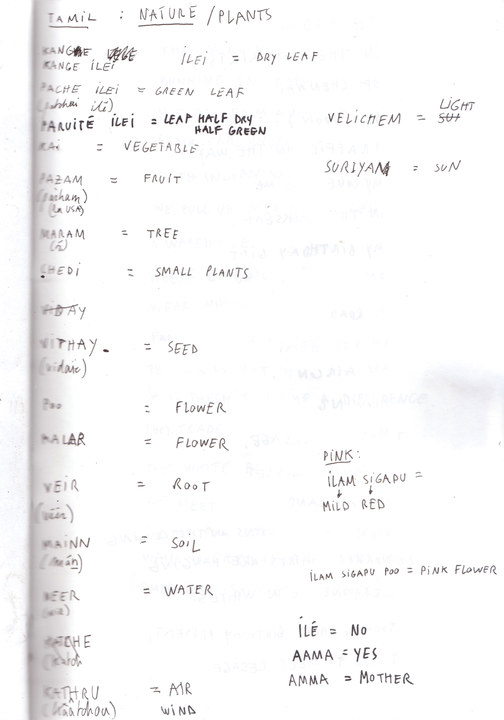 TAMIL : NATURE / PLANTS
ILEI = DRY LEAF
KANGE ILEI
PACHE ILEI = GREEN LEAF
PARUITÉ ILEI = LEAF HALF DRY
HALF GREEN
KAI = VEGETABLE
PAZAM = FRUIT
MARAM = TREE
CHEDI = SMALL PLANTS
VIDAY
VITHAY = SEED
POO = FLOWER
MALAR = FLOWER
VEIR = ROOT
MAINN = SOIL
NEER = WATER
KATCHE
KATHRU = AIR
WIND
LIGHT
VELICHEM =
SURIYAN = SUN
PINK:
ILAM SIGAPU =
MILD RED
ILAM SIGAPU POO = PINK FLOWER
ILÉ = NO
AAMA = YES
AMMA = MOTHER